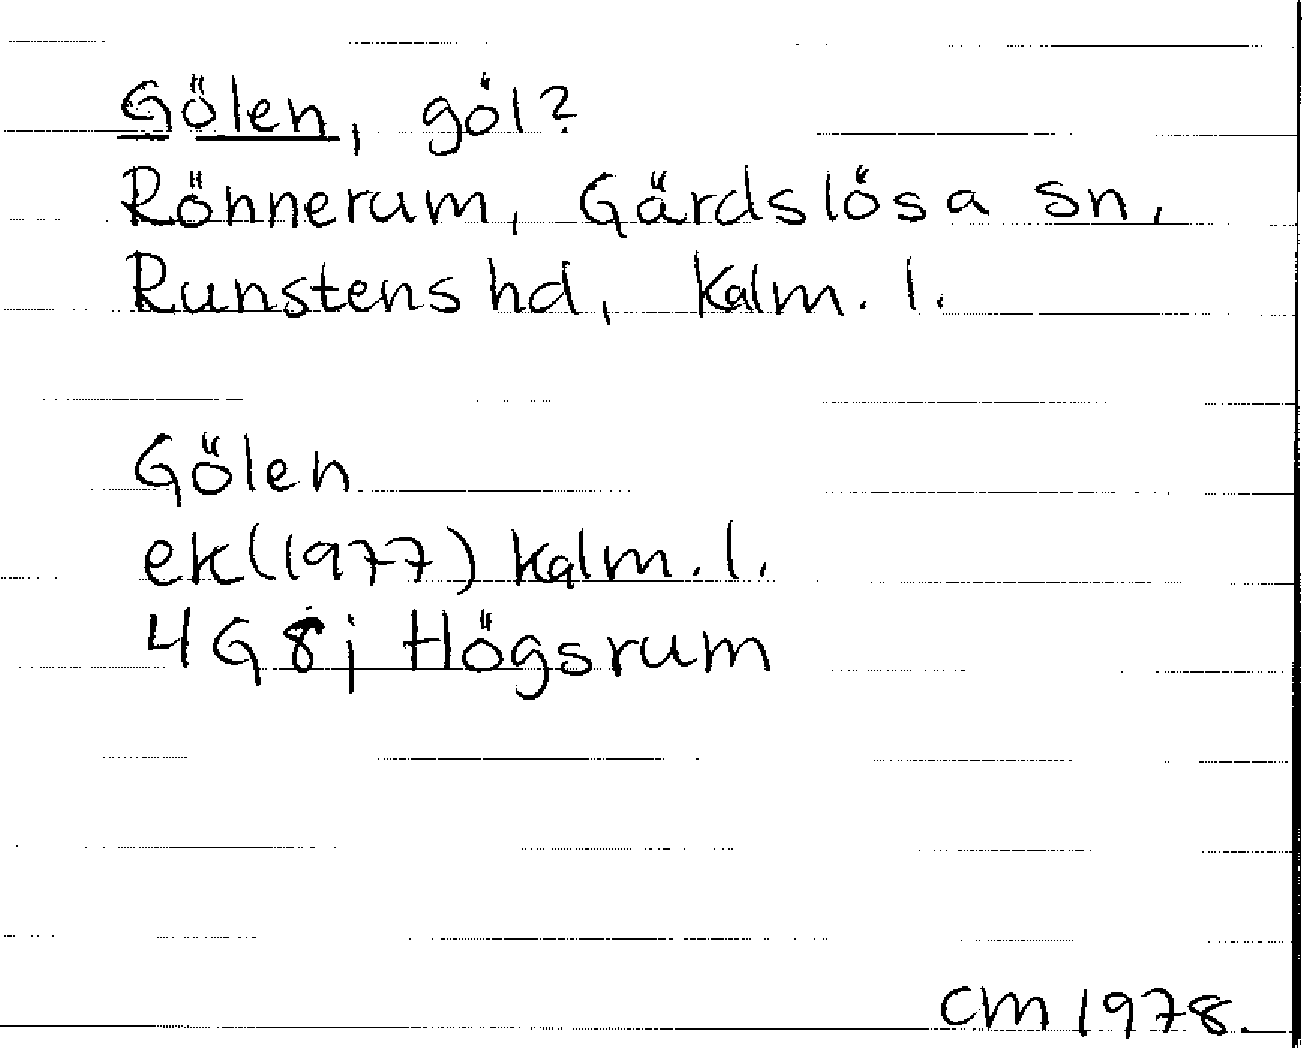 Gölen, göl?
Röhnerum, Gärdslösa sn,
Runstens hd, Kalm. l.
Gölen
ek(1977) Kalm. l.
4G 8j Högsrum
CM 1978.